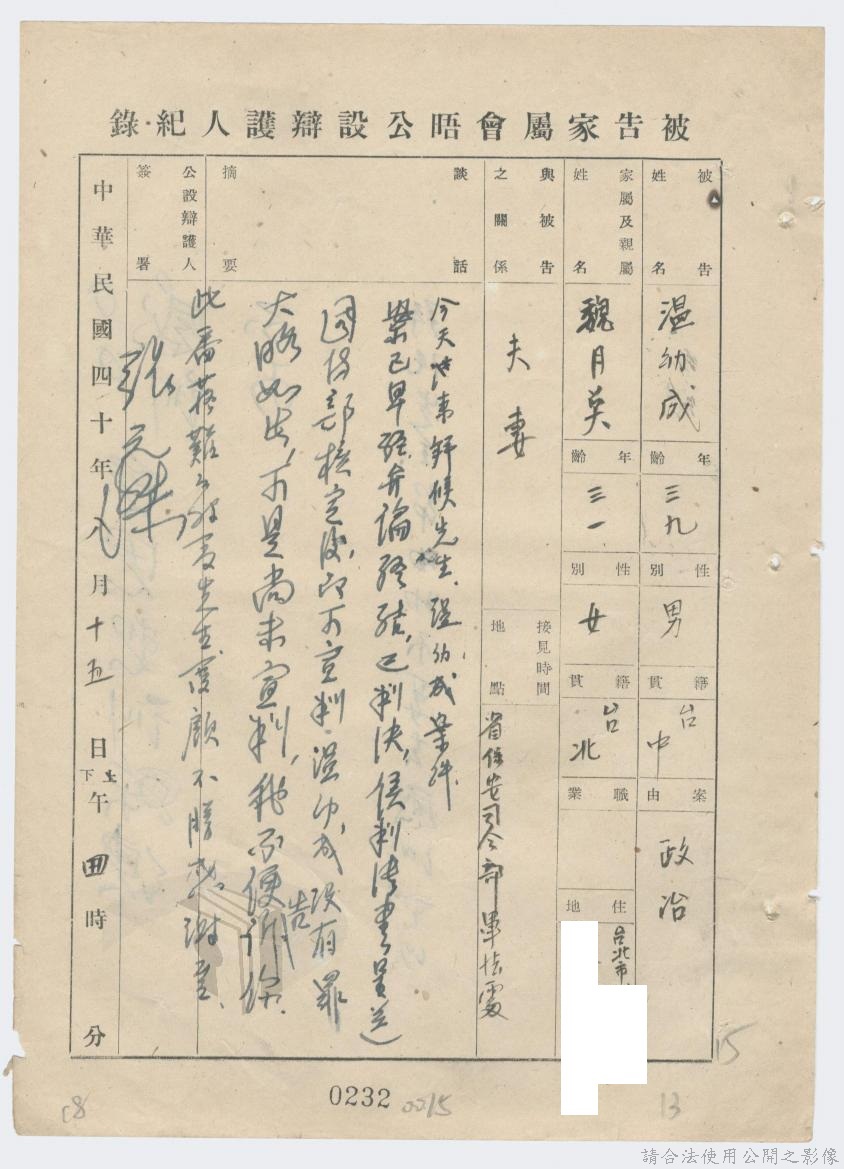 被告家屬會晤公設辯護人紀錄
被告姓名
溫幼成
年齡
三九
性別
男
籍貫
台中
案由
政治
家屬及親屬姓名
魏月英
年齡
三一
性別
女
籍貫
台北
職業
住地
台北市
與被告之關係
夫妻
接見時間地點
省保安司令部軍法處
談話摘要
今天 候先生、溫幼成案件
業已早經弁論終結,已判決,候判決書呈送
國防部核定後,即可宣判,溫幼成沒有罪
大略如此,可是尚未宣判,我不便告訴你.
此番 先生 顧不勝感謝
公設辯護人簽署
張元傑
中華民國四十年八月十五日上下午四時 分
0232
0015
15
13
c8
請合法使用公開之影像